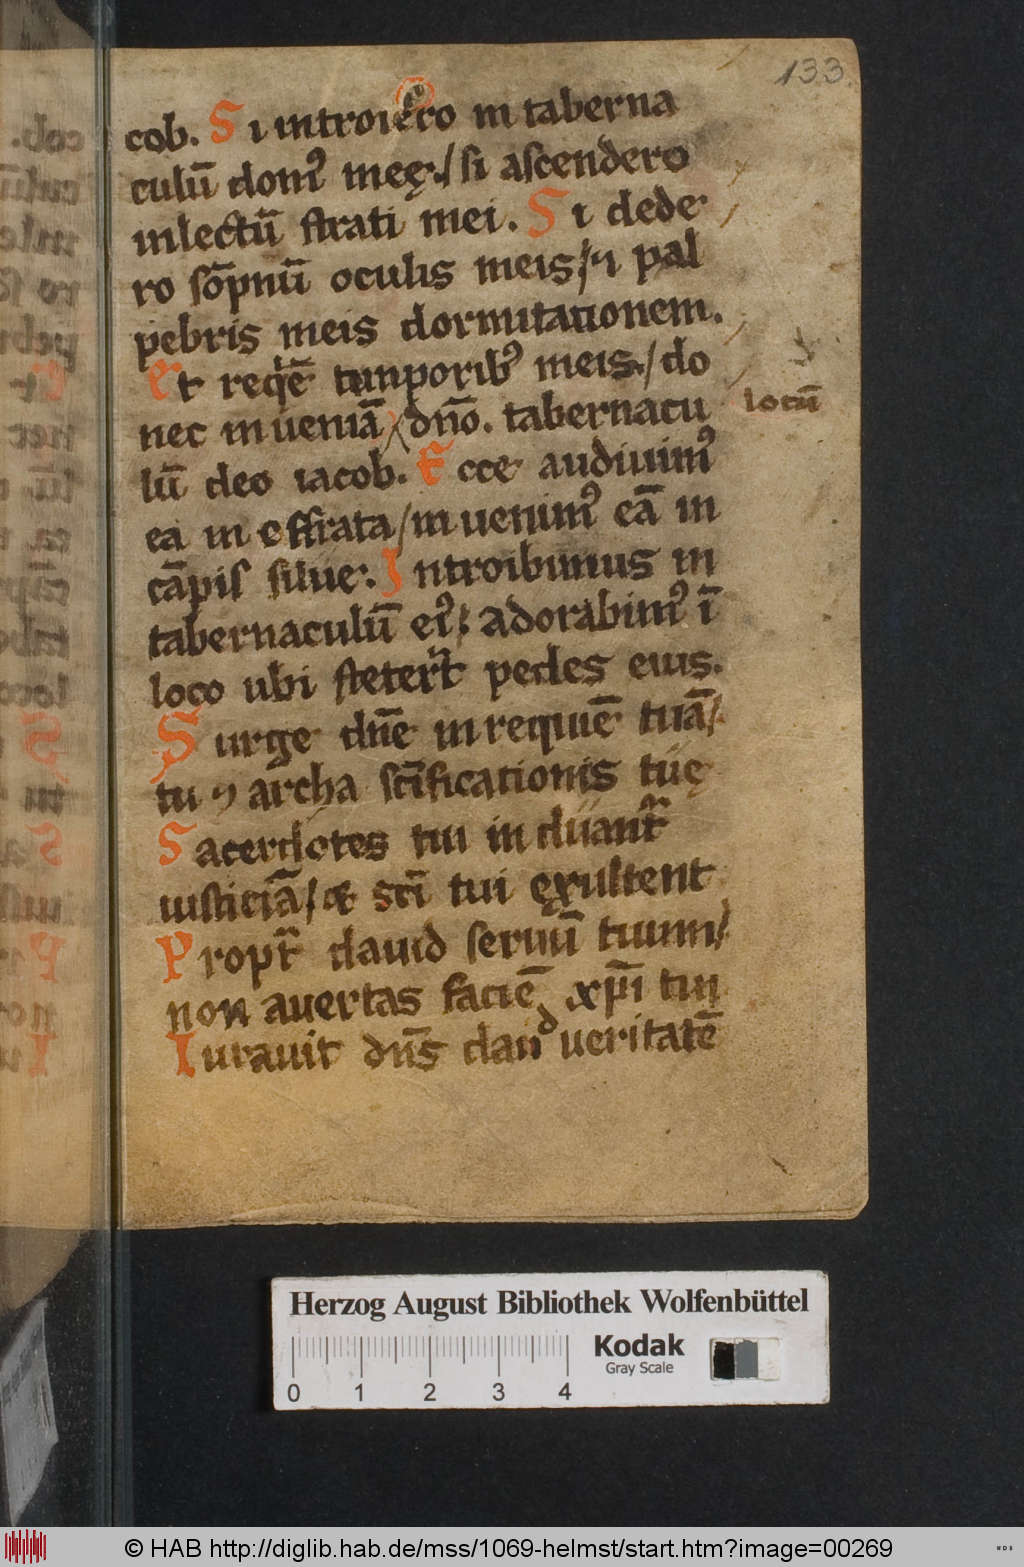 133
cob. Si introiero in taberna
culū domꝰ meę./ si ascendero
inlectū strati mei. Si dede
ro sōpnū oculis meis / ⁊ pal
pebris meis dormitationem.
Et reqͥē temporibꝰ meis./ do
nec inueniā dn̄o. tabernacu
locū
lū deo iacob. Ecce audiuimꝰ
ea in effrata / inuenimꝰ eā in
cāpis silue. Introibimus in
tabernaculū eiꝰ / adorabimꝰ ī
loco ubi stetert̄ pedes eius.
Surge dn̄e in requiē tuā /
tu ⁊ archa scīficationis tuę
Sacerdotes tui induant̄
iusticiā / & scī tui exultent
Propt̄ dauid seruū tuum /
non auertas faciē xp̄i tui
Iurauit dn̄s dauid ueritatē
Herzog August Bibliothek Wolfenbüttel
Kodak
Gray Scale
0 1 2 3 4
© HAB http://diglib.hab.de/mss/1069-helmst/start.htm?image=00269